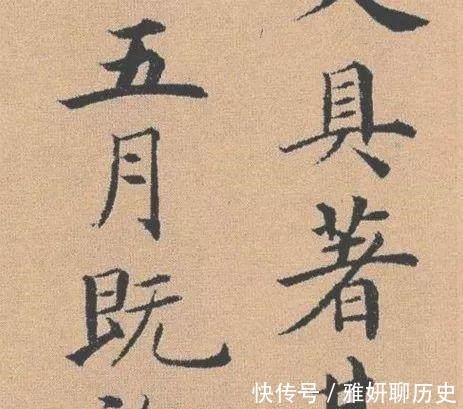 具著
五月既
快传号／雅妍聊历史